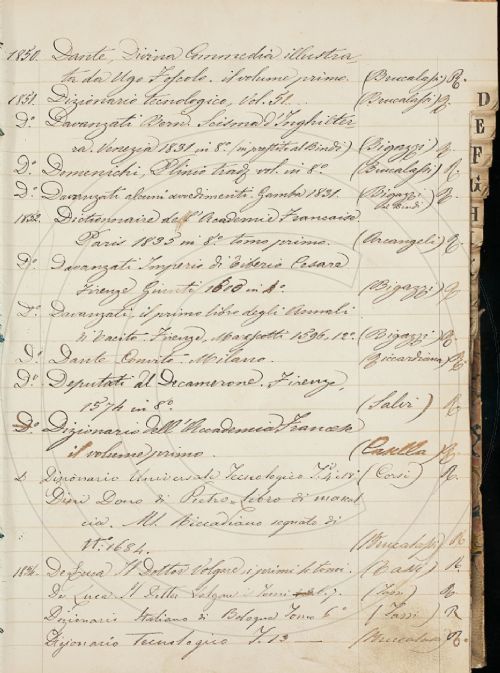 1850. Dante, Divina Commedia illustra
ta da Ugo Foscolo. il volume primo. (Brucalassi) R.
1851. Dizionario tecnologico, Vol. 51. (Brucalassi) R.
Dº Davanzati Bern. Scisma d'Inghilter
ra. Venezia 1831 in 8º (in prestito al Bindi) (Bigazzi) R.
Dº Domenichi, Plinio trad. vol. in 8º. (Brucalassi) R.
Dº Davanzati alcuni avvedimenti. Gamba 1831. (Bigazzi) R.
1852. Dictionnaire de l'Academie Francaise
Paris 1835 in 8º tomo primo. (Arcangeli) R.
Dº Davanzati Imperio di Tiberio Cesare
Firenze Giunti 1610 in 4º (Bigazzi) R.
Dº Davanzati, il primo libro degli Annali
di Tacito. Firenze, Marescotti 1596, 12º. (Bigazzi) R.
Dº Dante Convito. Milano. (Riccardiana) R.
Dº Deputati al Decamerone. Firenze,
1574 in 8º. (Salvi) R.
Dº Dizionario dell'Accademia Francese
il volume primo. (Casella) R.
D Dizionario Universale Tecnologico T. (Corsi) R.
Dini Dono di Pietro. Libro di mascal
cia. Ms. Riccardiano segnato di
Nº. 1684. (Brucalassi) R
De Luca Il Dottor Volgare i primi tomi. (Tassi) R.
De Luca Il Dottor Volgare (Tassi) R
Dizionario Italiano di Bologna Tomo 6º (Tassi) R
Dizionario tecnologico T. 13. — (Brucalassi) R.
D
E
F
G
H